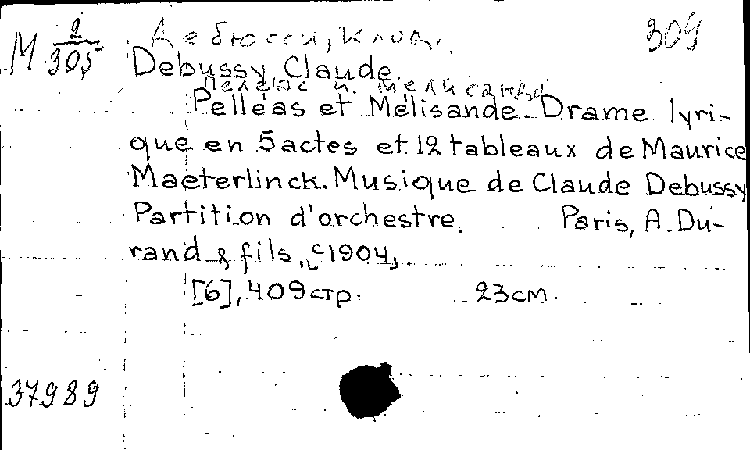 M 2/305 Дебюсси, Клод. 309
Debussy, Claude.
Пелеас и Мелисанда
Pelléas et Mélisande. Drame lyri-
que en 5 actes et 12 tableaux de Maurice
Maeterlinck. Musique de Claude Debussy
Partition d'orchestre. Paris, A. Du-
rand & fils, c1904,
[6], 409 стр. 23 см.
37989